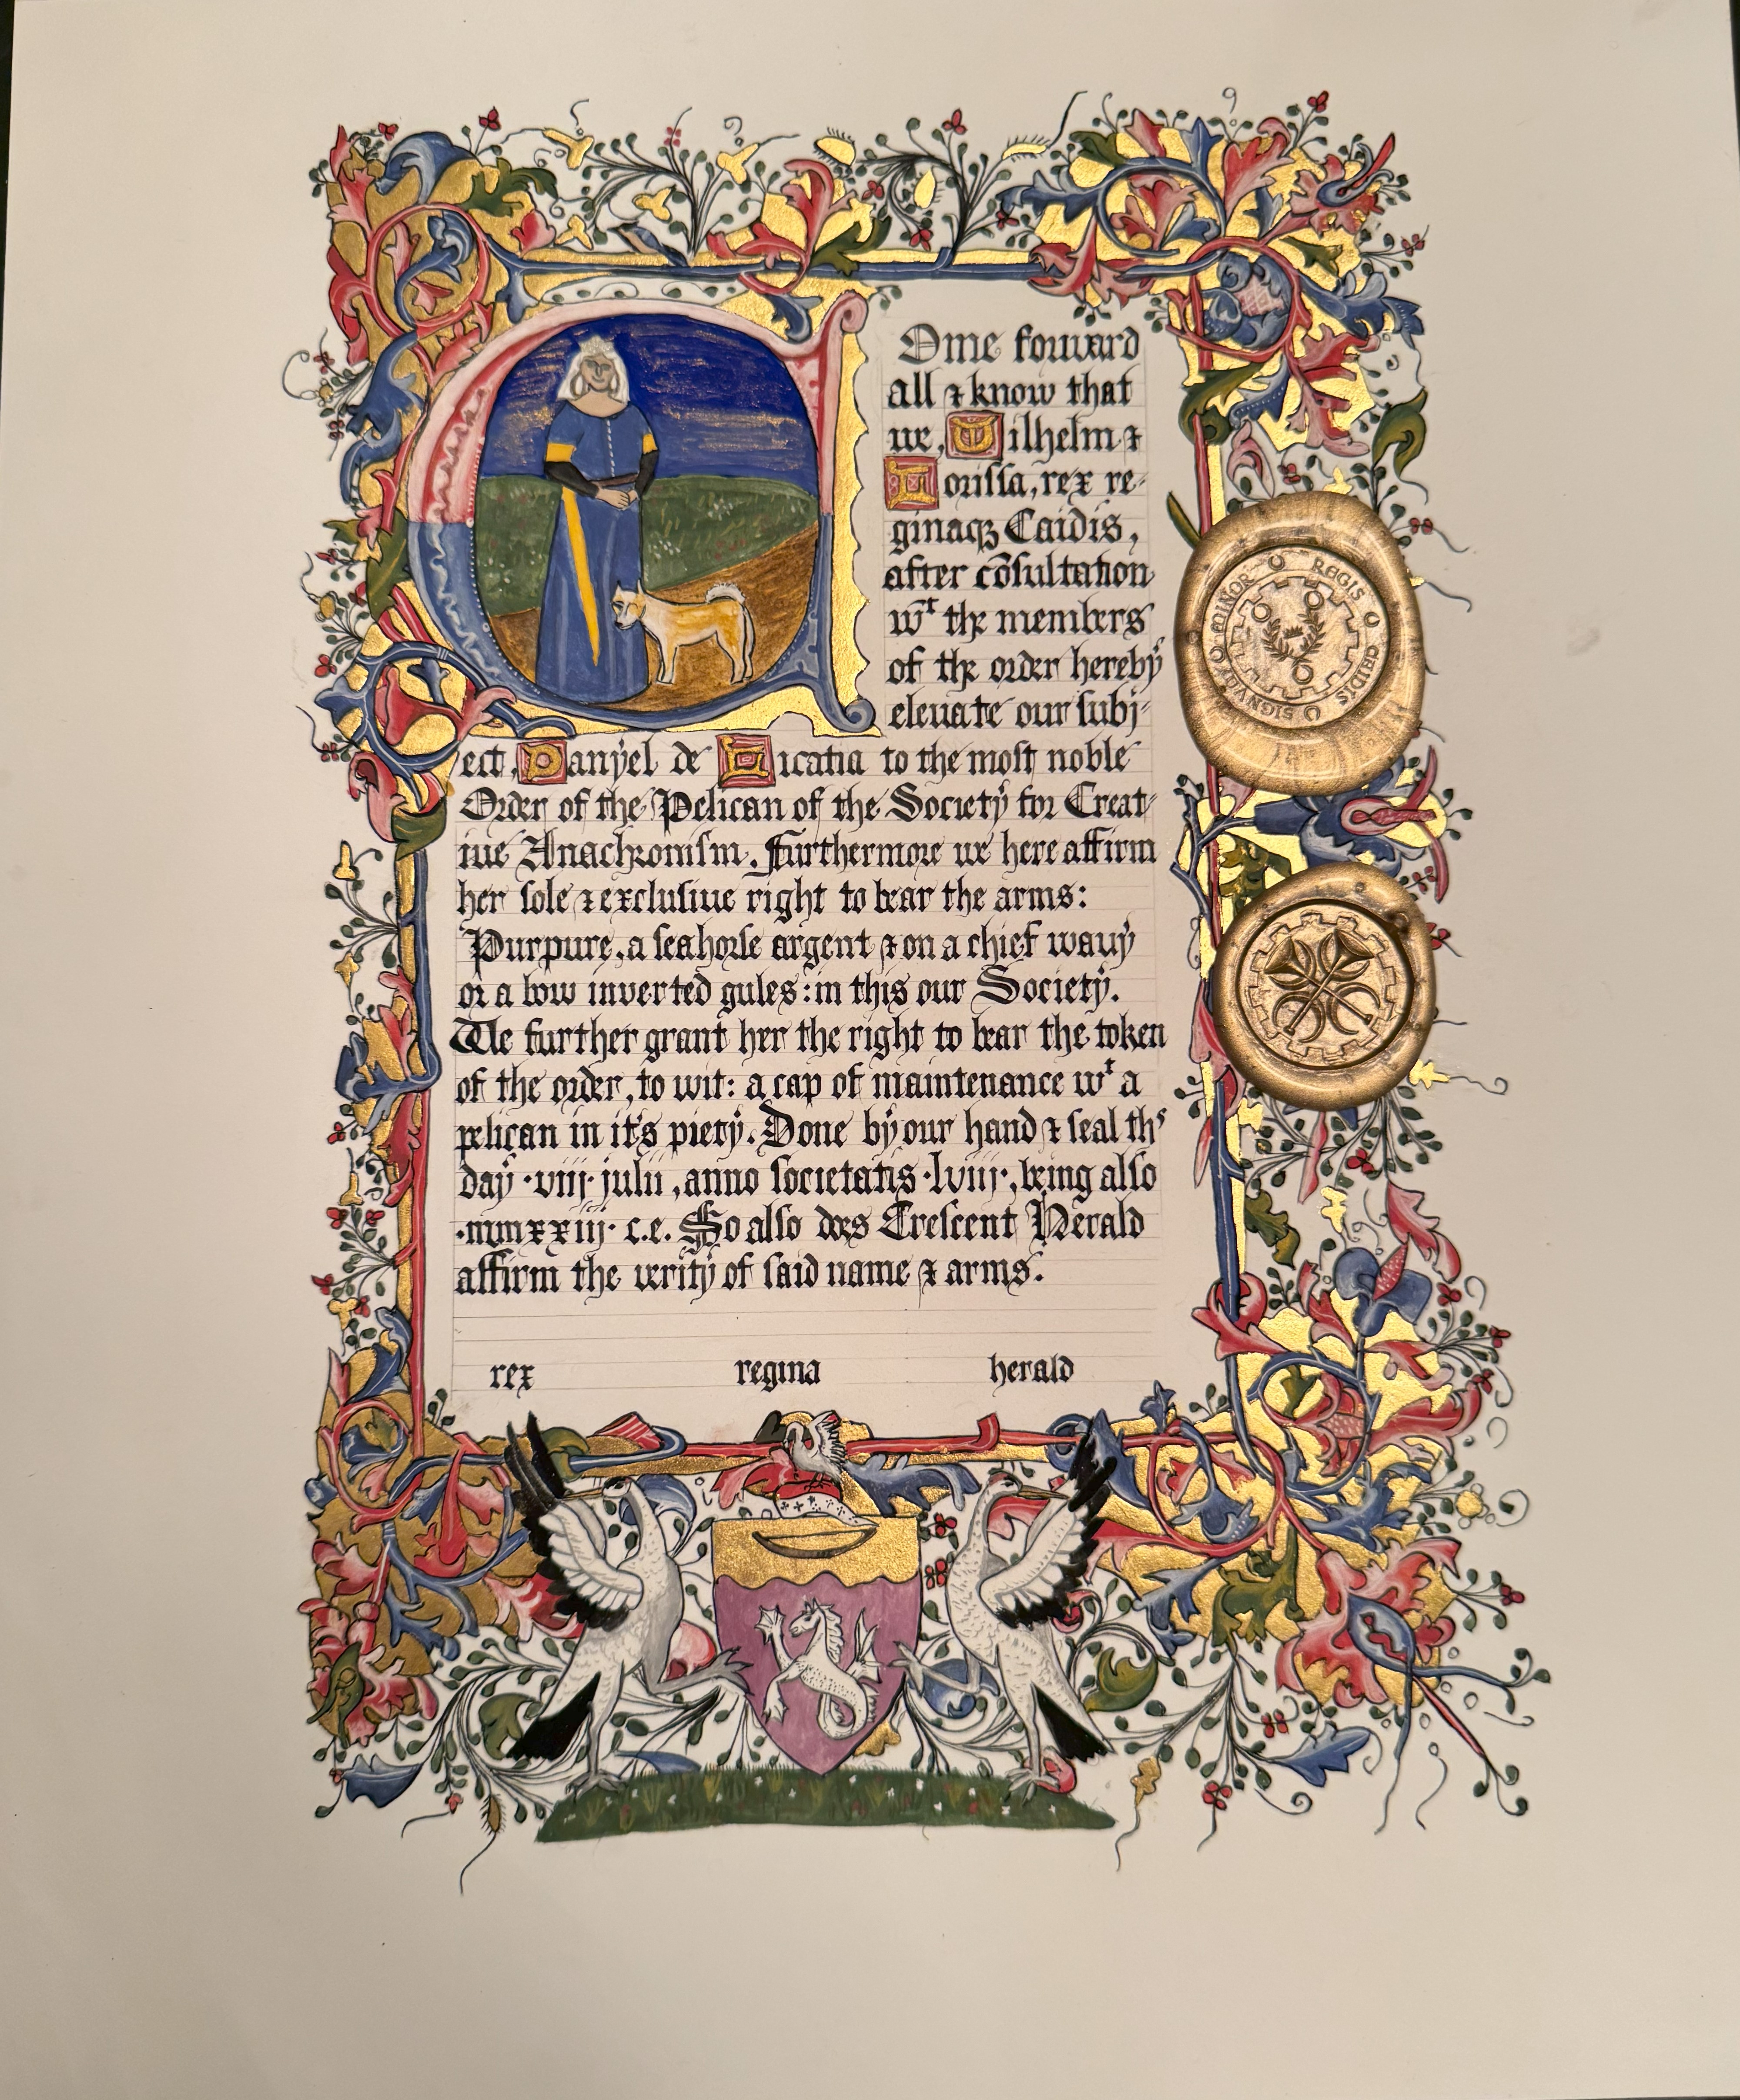 Come forward
all & know that
we, Wilhelm &
Lorissa, rex re-
ginaqꝫ Caidis,
after cõsultation
wᵗ the members
of the order hereby
elevate our subj-
ect, Danyel de Licatia to the most noble
Order of the Pelican of the Society for Creat-
ive Anachronism. Furthermore we here affirm
her sole & exclusive right to bear the arms:
Purpure, a seahorse argent & on a chief wavy
or a bow inverted gules: in this our Society.
We further grant her the right to bear the token
of the order, to wit: a cap of maintenance wᵗ a
pelican in it's piety. Done by our hand & seal thˢ
day ·viij· julii, anno societatis ·lviij·, being also
·mmxxiij· c.e. So also does Crescent Herald
affirm the verity of said name & arms.
rex regina herald
SIGNVM MINOR REGIS CAIDIS